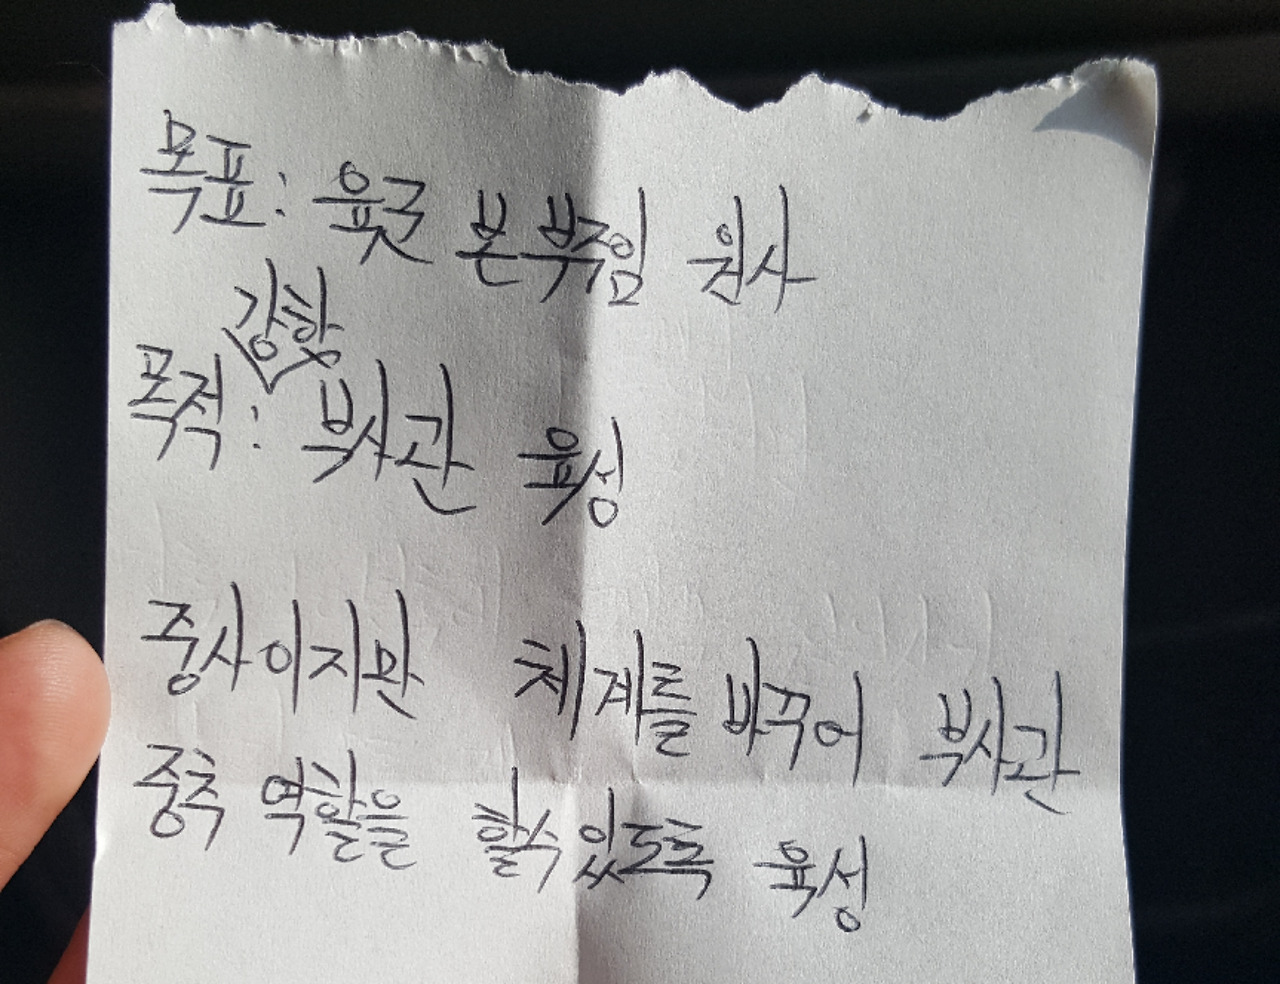 목표: 육군 본부주임 원사
강한
목적: 부사관 육성
중사이지만 체계를 바꾸어 부사관
중추 역할을 할수 있도록 육성